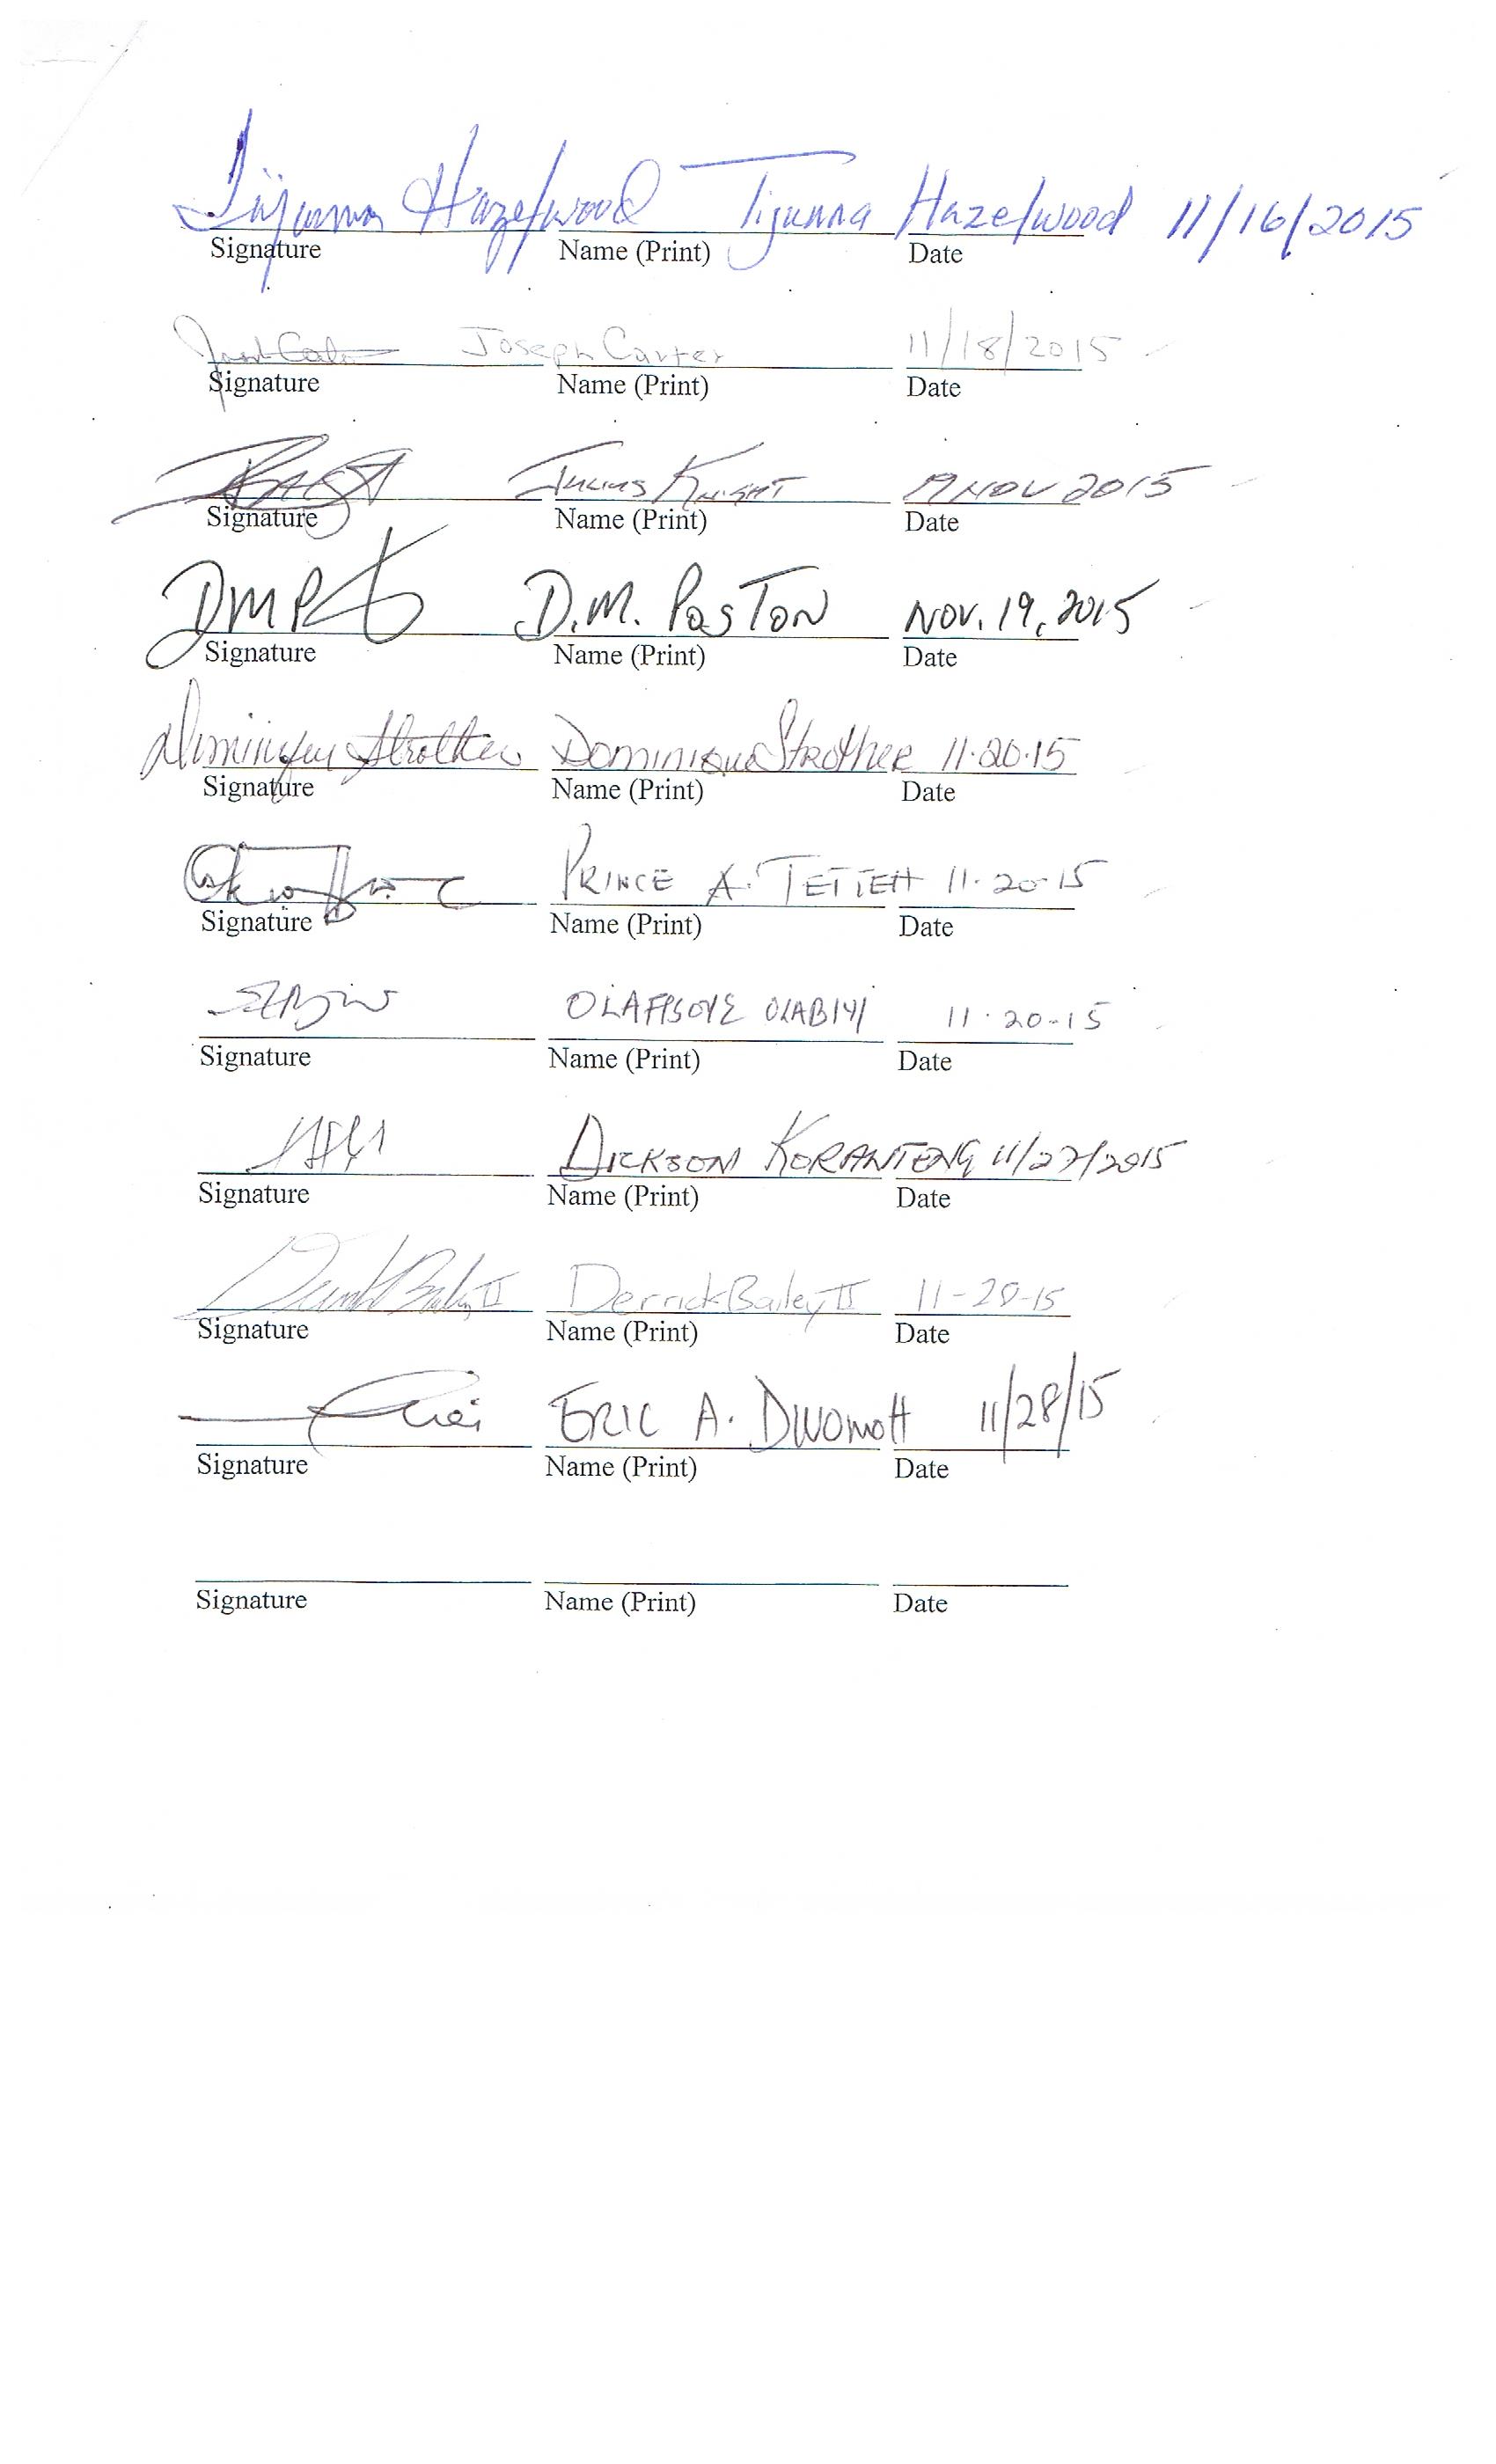 Tijunna Hazelwood Tijunna Hazelwood 11/16/2015
Signature Name (Print) Date
Joseph Carter 11/18/2015
Signature Name (Print) Date
Julius Knight 19 NOV 2015
Signature Name (Print) Date
DMP D.M. Poston NOV. 19, 2015
Signature Name (Print) Date
Dominique Strother Dominique Strother 11.20.15
Signature Name (Print) Date
PRINCE A. TETTEH 11.20.15
Signature Name (Print) Date
OLABIYI 11.20-15
Signature Name (Print) Date
DICKSON KORANTENG 11/27/2015
Signature Name (Print) Date
Derrick Bailey II Derrick Bailey II 11-28-15
Signature Name (Print) Date
ERIC A. DWOMOH 11/28/15
Signature Name (Print) Date
Signature Name (Print) Date